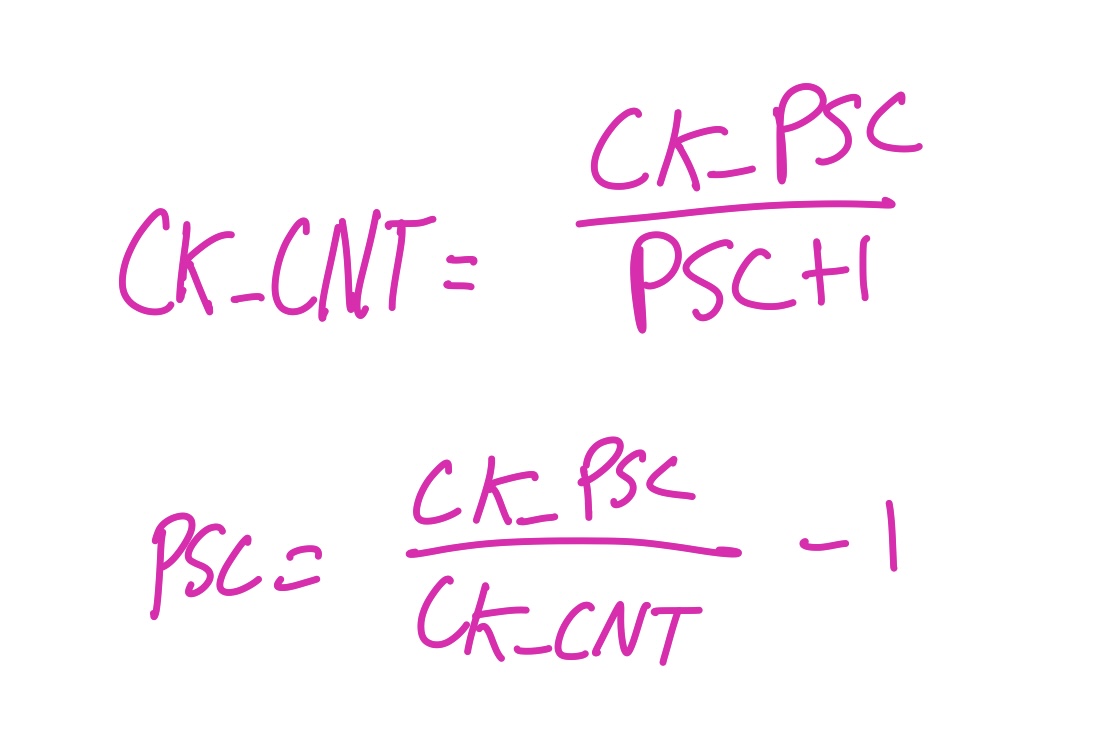 CK_CNT = CK_PSC / PSC+1
PSC = CK_PSC / CK_CNT - 1